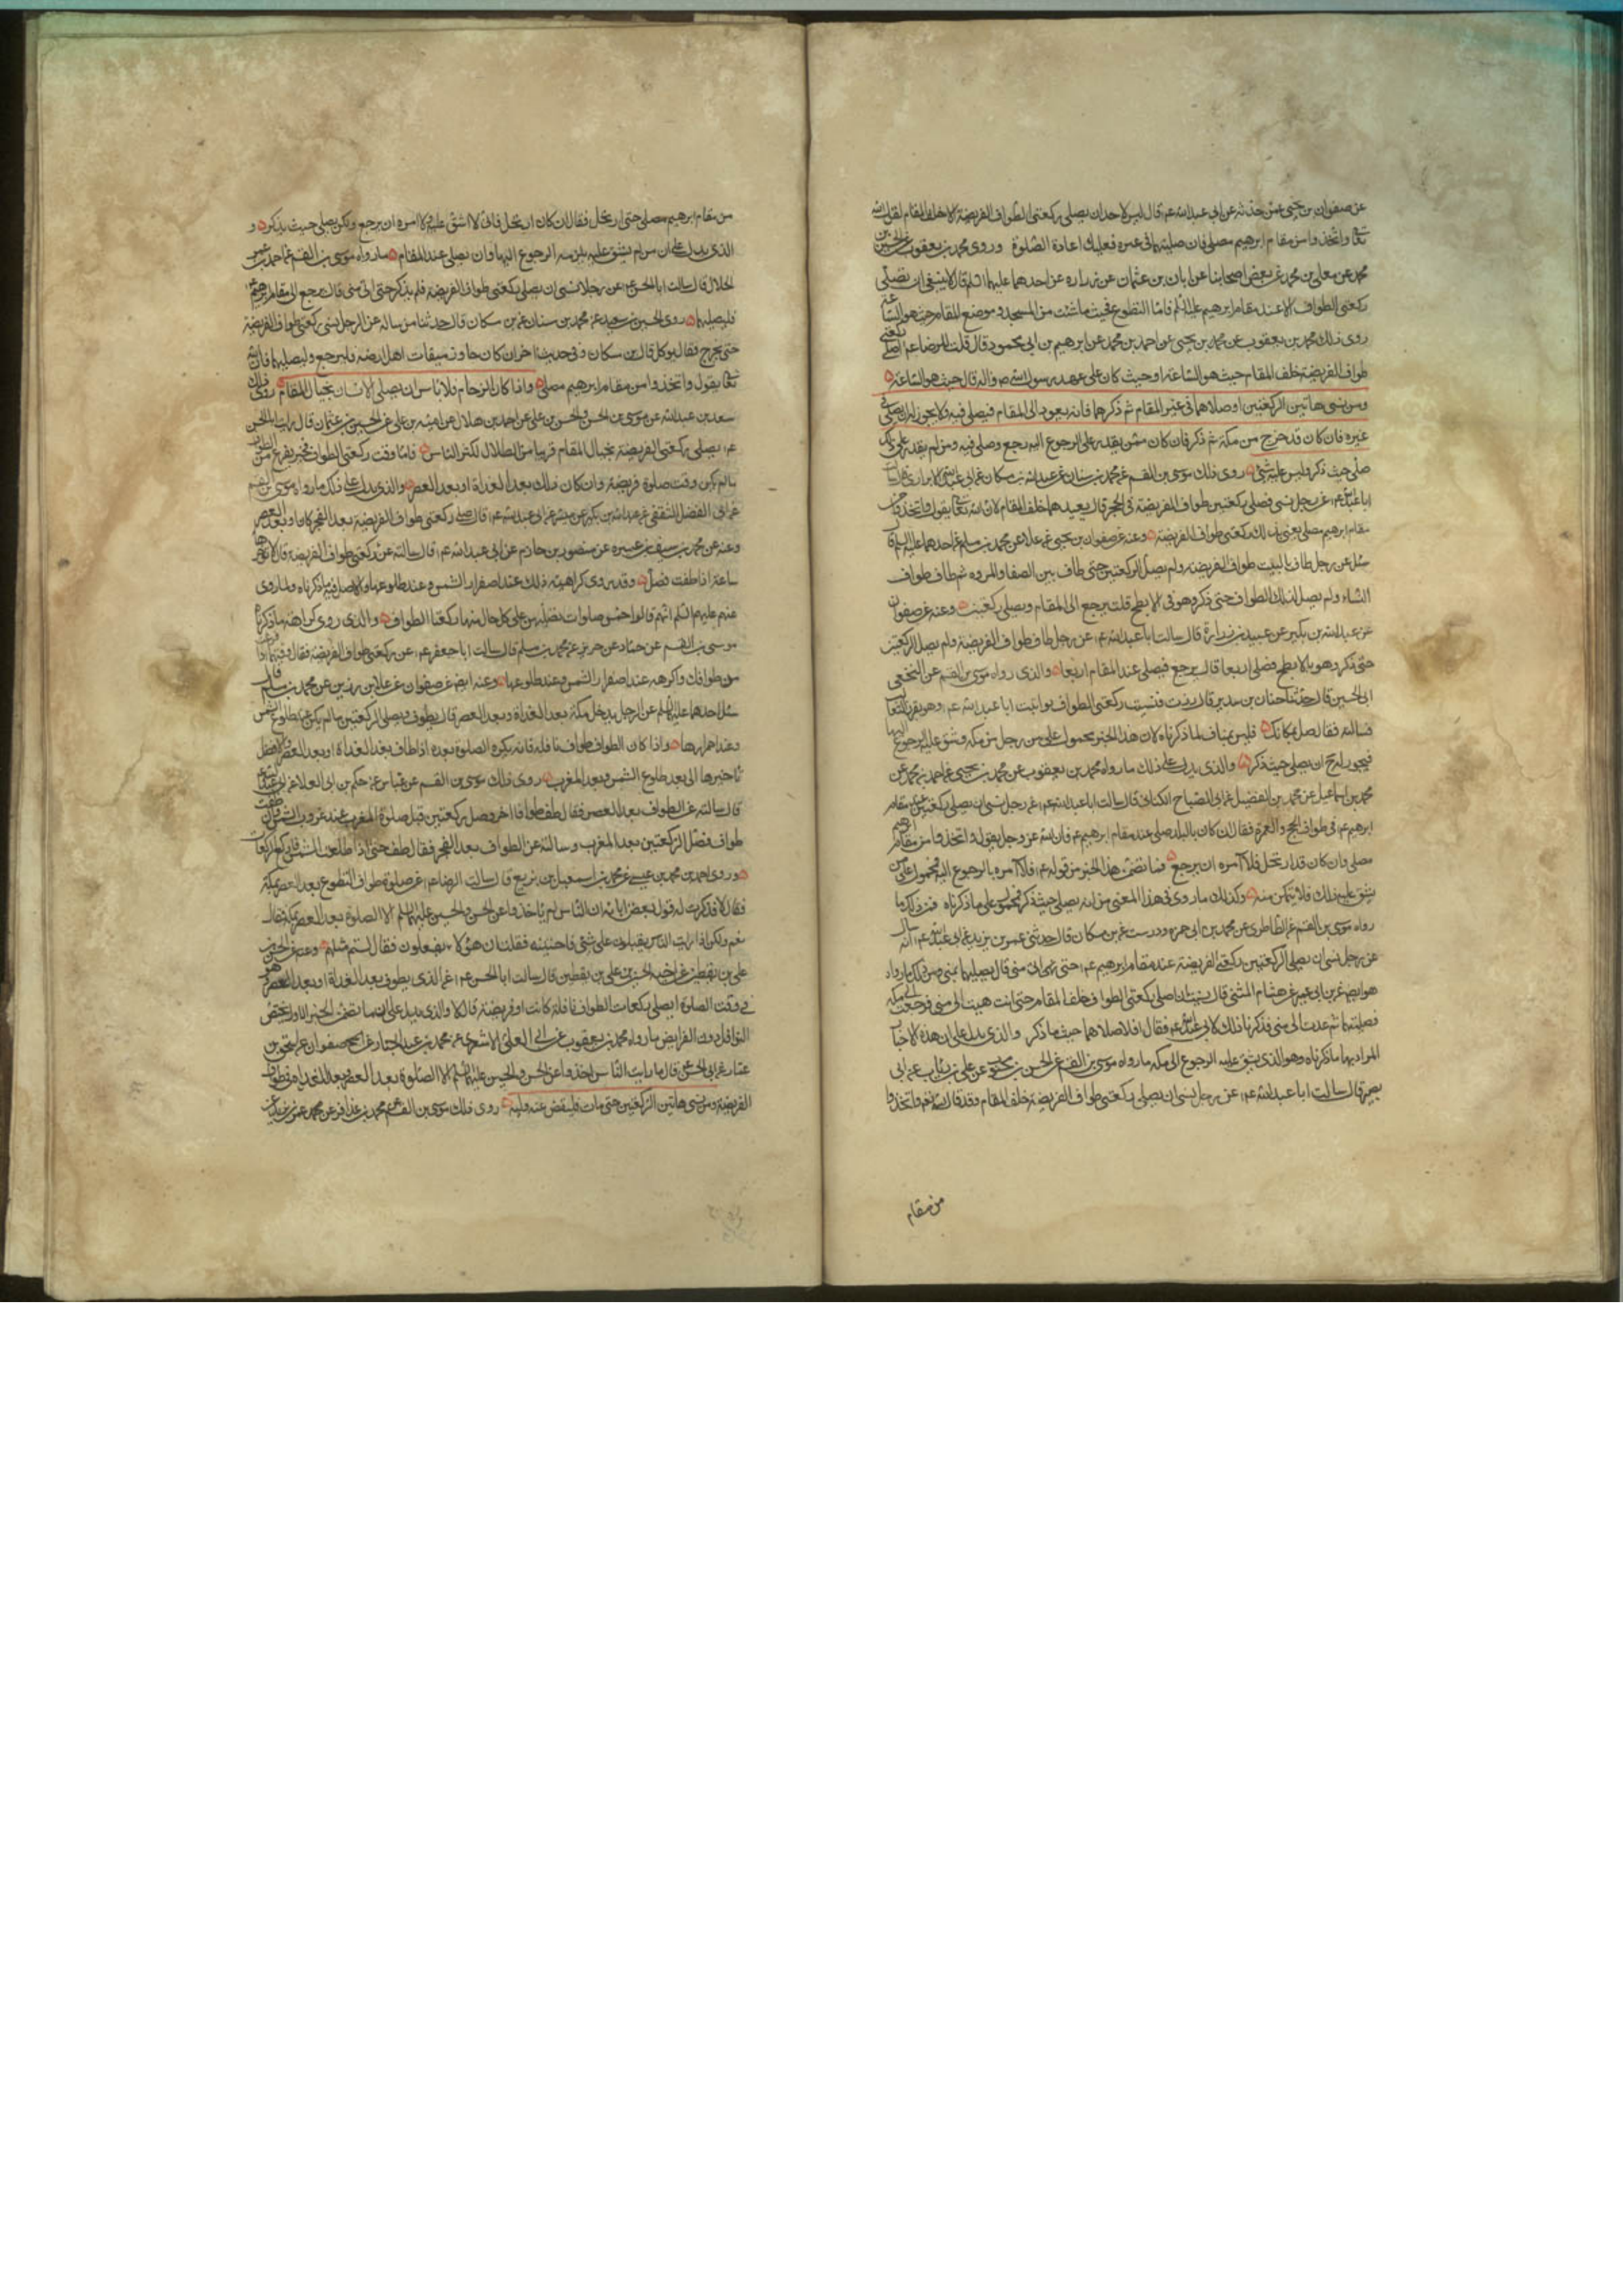 عن صفوان بن يحيى عمن حدثه عن ابى عبدالله ع قال ليس لاحد ان يصلى ركعتى الطواف الفريضة الا خلف المقام لقول الله
تعا واتخذوا من مقام ابرهيم مصلى فان صليتهما فى غيره فعليك اعادة الصلوة وروى محمد بن يعقوب عن الحسين بن
محمد عن معلى بن محمد عن بعض اصحابنا عن ابان بن عثمان عن زراره عن احدهما عليهما السلم قال لا ينبغى ان تصلى
ركعتى الطواف الا عند مقام ابرهيم عليه السلم فاما التطوع فحيث ما شئت من المسجد وموضع المقام حيث هو الساعة
روى ذلك محمد بن يعقوب عن محمد بن يحيى عن احمد بن محمد عن ابرهيم بن ابى محمود قال قلت للرضا ع اصلى ركعتى
طواف الفريضة خلف المقام حيث هو الساعة او حيث كان على عهد رسول الله ص واله قال حيث هو الساعة
ومن نسى هاتين الركعتين او صلاهما فى غير المقام ثم ذكرهما فانه يعود الى المقام فيصلى فيه ولا يجوز له ان يصلى فى
غيره فان كان قد خرج من مكة ثم ذكر فان كان ممن يقدر على الرجوع اليه رجع وصلى فيه ومن لم يقدر على ذلك
صلى حيث ذكر وليس عليه شئ روى ذلك موسى بن القسم عن محمد بن سنان عن عبدالله بن مسكان عن ابى عبدالله الابزارى قال سالت
ابا عبدالله ع عن رجل نسى فصلى ركعتين طواف الفريضة فى الحجر قال يعيدهما خلف المقام لان الله تعا يقول واتخذوا من
مقام ابرهيم مصلى يعنى بذلك ركعتى طواف الفريضة وعنه عن صفوان بن يحيى عن علا عن محمد بن مسلم عن احدهما عليهما السلم قال
سئل عن رجل طاف بالبيت طواف الفريضة ولم يصل الركعتين حتى طاف بين الصفا والمروه ثم طاف طواف
النساء ولم يصل لذلك الطواف حتى ذكر وهو فى الابطح قلت يرجع الى المقام ويصلى ركعتين وعنه عن صفوان
عن عبدالله بن بكير عن عبيد بن زرارة قال سالت ابا عبدالله ع عن رجل طاف طواف الفريضة ولم يصل الركعتين
حتى ذكر وهو بالابطح فصلى اربعا قال يرجع فيصلى عند المقام اربعا والذى رواه موسى بن القسم عن النخعى
ابى الحسين قال حدثنا حنان بن سدير قال زرت فنسيت ركعتى الطواف فاتيت ابا عبدالله ع وهو بقرن الثعالب
فسالته فقال صل بمكانك فليس بمناف لما ذكرناه لان هذا الخبر محمول على من رحل من مكه وشق عليه الرجوع اليها
فيجوز له ح ان يصلى حيث ذكر والذى يدل على ذلك ما رواه محمد بن يعقوب عن محمد بن يحيى عن احمد بن محمد عن
محمد بن اسماعيل عن محمد بن الفضيل عن ابى الصباح الكنانى قال سالت ابا عبدالله ع عن رجل نسى ان يصلى ركعتين عند مقام
ابرهيم ع فى طواف الحج والعمرة فقال ان كان بالبلد صلى عند مقام ابرهيم ع فان الله عز وجل يقول واتخذوا من مقام ابرهيم
مصلى وان كان قد ارتحل فلا آمره ان يرجع فما تضمن هذا الخبر من قوله ع فلا آمره بالرجوع اليه محمول على من
يشق عليه ذلك فلا يتمكن منه وكذلك ما روى فى هذا المعنى من انه يصلى حيث ذكر محمول على ما ذكرناه فمن ذلك ما
رواه موسى بن القسم عن الطاطرى عن محمد بن ابى حمزه ودرست عن بن مسكان قال حدثنى عمر بن يزيد عن ابى عبدالله ع انه سال
عن رجل نسى ان يصلى الركعتين ركعتى الفريضة عند مقام ابرهيم ع حتى اتى منى قال يصليهما بمنى ومن ذلك ما رواه
هو ايضا عن بن ابى عمير عن هشام المثنى قال نسيت ان اصلى ركعتى الطواف خلف المقام حتى انتهيت الى منى فرجعت الى مكه
فصليتهما ثم عدت الى منى فذكرنا ذلك لابى عبدالله ع فقال افلا صلاهما حيث ما ذكر والذى يدل على ان هذه الاخبار
المراد بها ما ذكرناه وهو الذى يشق عليه الرجوع الى مكه ما رواه موسى بن القسم عن الحسن بن محبوب عن على بن رئاب عن ابى
بصير قال سالت ابا عبدالله ع عن رجل نسى ان يصلى ركعتى طواف الفريضة خلف المقام وقد قال الله تعا واتخذوا
من مقام
من مقام ابرهيم مصلى حتى ارتحل فقال ان كان ارتحل فانى لا اشق عليه ولا امره ان يرجع ولكن يصلى حيث يذكر و
الذى يدل على ان من لم يشق عليه يلزمه الرجوع اليها وان يصلى عند المقام ما رواه موسى بن القسم عن احمد بن عمر
الحلال قال سالت ابا الحسن ع عن رجل نسى ان يصلى ركعتى طواف الفريضة فلم يذكر حتى اتى منى قال يرجع الى مقام ابرهيم
فليصليهما روى الحسين بن سعيد عن محمد بن سنان عن بن مسكان قال حدثنا من ساله عن الرجل ينسى ركعتى طواف الفريضة
حتى يخرج فقال يوكل قال بن مسكان وفى حديث اخر ان كان جاوز ميقات اهل ارضه فليرجع وليصليهما فان الله
تعا يقول واتخذوا من مقام ابرهيم مصلى واذا كان الزحام فلا باس ان يصلى الانسان بحيال المقام روى ذلك
سعد بن عبدالله عن موسى بن الحسن والحسن بن على عن احمد بن هلال عن اميه بن على عن الحسين بن عثمان قال رايت ابا الحسن
ع يصلى ركعتى الفريضة بحيال المقام قريبا من الظلال لكثر الناس فاما وقت ركعتى الطواف فحين يفرغ من الطواف
ما لم يكن وقت صلوة فريضة وان كان ذلك بعد الغداة او بعد العصر والذى يدل على ذلك ما رواه موسى بن القسم
عن ابى الفضل الثقفى عن عبدالله بن بكير عن ميسر عن ابى عبدالله ع قال صل ركعتى طواف الفريضة بعد الفجر كان او بعد العصر
وعنه عن محمد بن سيف بن عميره عن منصور بن حازم عن ابى عبدالله ع قال سالته عن ركعتى طواف الفريضة قال لا تؤخرها
ساعة اذا طفت فصل وقد روى كراهية ذلك عند اصفرار الشمس وعند طلوعها والاصل فيه ما ذكرناه ولما روى
عنهم عليهم السلم انهم قالوا خمس صلوات تصليهن على كل حال منها ركعتا الطواف والذى روى كراهته ما ذكرناه
موسى بن القسم عن حماد عن حريز عن محمد بن مسلم قال سالت ابا جعفر ع عن ركعتى طواف الفريضة فقال وقتهما اذا فرغت
من طوافك واكرهه عند اصفرار الشمس وعند طلوعها وعنه ايضا عن صفوان عن علا بن رزين عن محمد بن مسلم قال
سئل احدهما عليهما السلم عن الرجل يدخل مكة بعد الغداة وبعد العصر قال يطوف ويصلى الركعتين ما لم يكن عند طلوع الشمس
وعند احمرارها واذا كان الطواف طواف نافلة فانه يكره الصلوة بعده اذا طاف بعد الغداة او بعد العصر والافضل
تاخيرها الى بعد طلوع الشمس وبعد المغرب روى ذلك موسى بن القسم عن عباس عن حكم بن ابى العلا عن ابى عبدالله
قال سالته عن الطواف بعد العصر فقال طف طوافا اخر وصل ركعتين قبل صلوة المغرب عند غروب الشمس وان طفت
طواف فصل الركعتين بعد المغرب وسالته عن الطواف بعد الفجر فقال طف حتى اذا طلعت الشمس فاركع الركعات
وروى احمد بن محمد بن عيسى عن محمد بن اسمعيل بن بزيع قال سالت الرضا ع عن صلوة طواف التطوع بعد العصر بمكة
فقال لا فذكرت له قول بعض ابائه ان الناس لم ياخذوا عن الحسن والحسين عليهما السلم الا الصلوة بعد العصر بمكة فقال
نعم ولكن اذا رايت الناس يقبلون على شئ فاجتنبه فقلت ان هؤلاء يفعلون فقال لستم مثلهم وعنه عن الحسن
على بن يقطين عن اخيه الحسين عن على بن يقطين قال سالت ابا الحسن ع عن الذى يطوف بعد الغداة او بعد العصر وهو
فى وقت الصلوة ايصلى ركعات الطواف نافلة كانت او فريضة قال لا والذى يدل على ان ما تضمن الخبر الاول يختص
النوافل دون الفرايض ما رواه محمد بن يعقوب عن ابى العلى الاشعرى عن محمد بن عبدالجبار عن صفوان عن اسحق بن
عمار عن ابى الحسن ع قال ما رايت الناس اخذوا عن الحسن والحسين عليهما السلم الا الصلوة بعد العصر وبعد الغداه فى طواف
الفريضة ومن نسى هاتين الركعتين حتى مات فليقض عنه وليه روى ذلك موسى بن القسم عن محمد بن عذافر عن محمد عمر بن يزيد عن